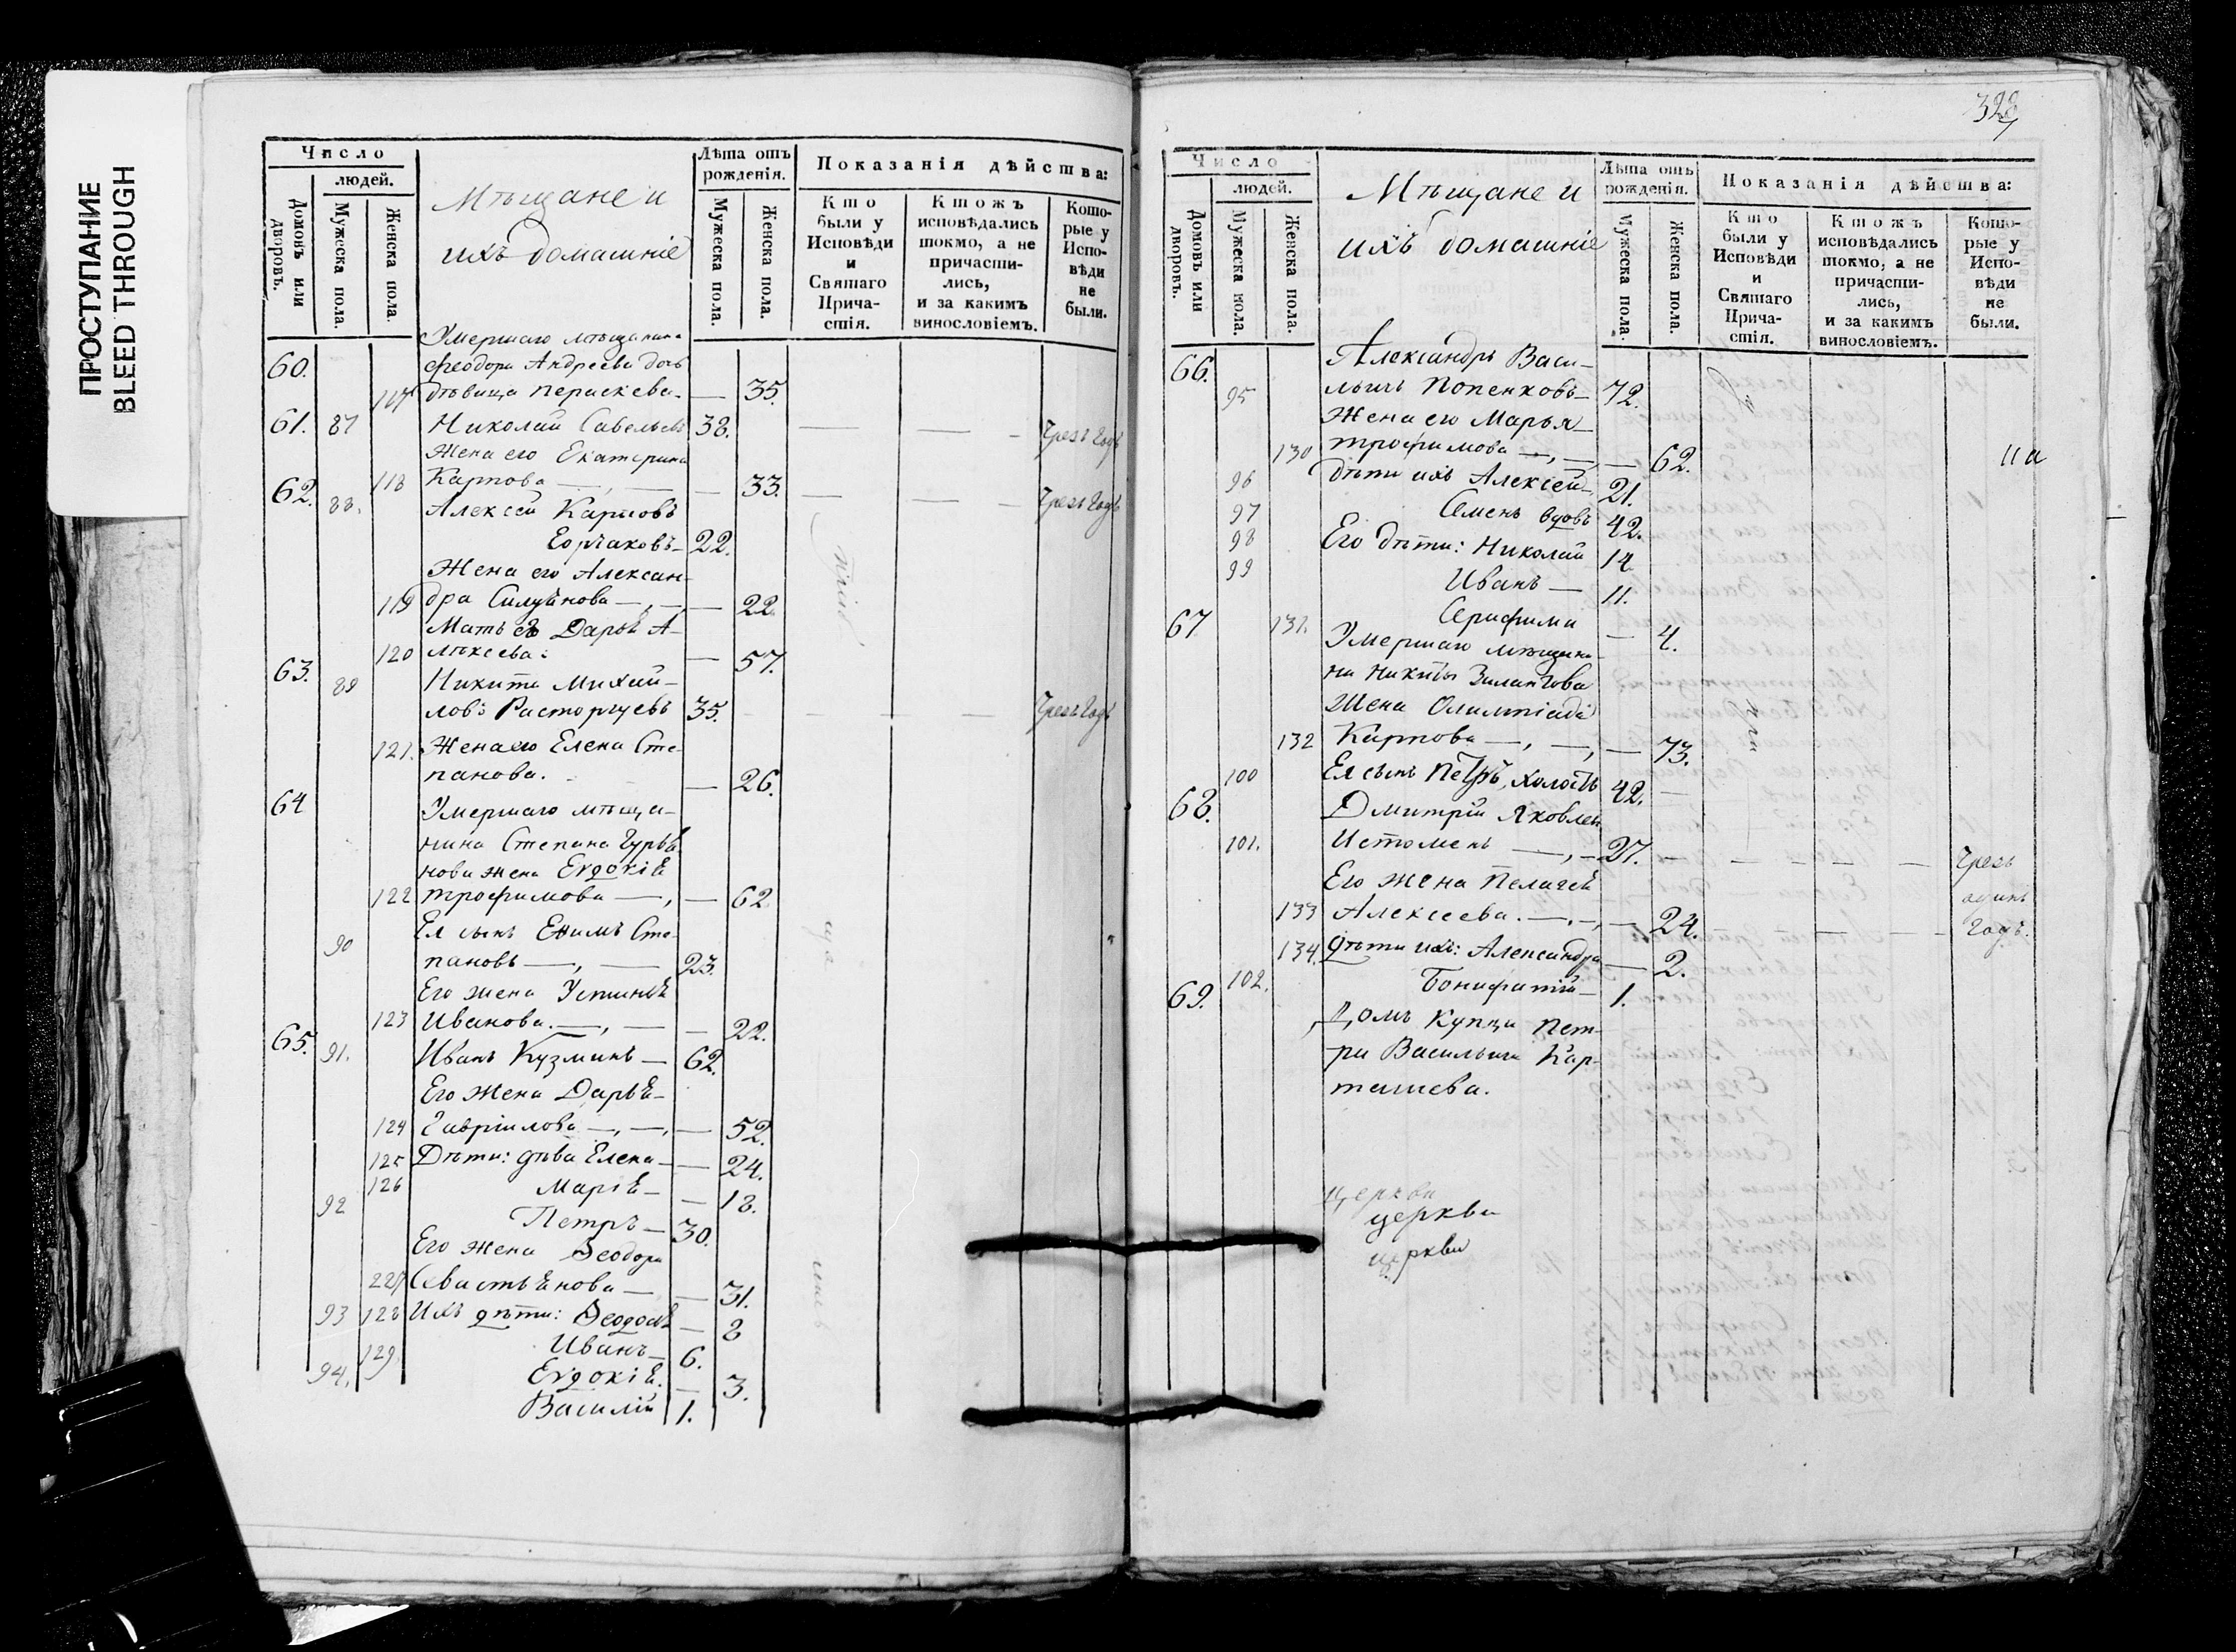 ПРОСТУПАНИЕ
BLEED THROUGH
Число
людей.
Домовъ или дворовъ.
Мужеска пола.
Женска пола.
Мѣщане и
ихъ домашніе
Лѣта отъ рожденія.
Мужеска пола.
Женска пола.
Показанія дѣйства:
Кто были у Исповѣди и Святаго Прича-стія.
Ктожъ исповѣдались токмо, а не причасти-лись, и за какимъ винословіемъ.
Кото-рые у Испо-вѣди не были.
Умершаго мѣщанина
60. Феодора Андреева дочь
117 дѣвица Параскева. — 35.
61. 87 Николай Савельевъ 38. — — - Чрезъ годъ
Жена его Екатерина
118 Карпова —, — — 33.
62. 88. Алексей Карповъ — — Чрезъ годъ
Горчаковъ — 22.
Жена его Алексан-
119 дра Силуянова —, — — 22
Мать его Дарья А-
120 лѣксева: — 57.
63. 89 Никита Михай-
ловъ Расторгуевъ 35. — — — Чрезъ годъ
121. Жена его Елена Сте-
панова. — 26.
64 Умершаго мѣща-
нина Степана Гурья
нова жена Евдокія
122 Трофимова —, — 62
90 Ея сынъ Ефимъ Сте-
пановъ —, — 23.
Его жена Устинья
123 Иванова. —, — — 22.
65. 91. Иванъ Кузминъ — 62.
Его жена Дарья —
124 Гавріилова —, —, — 52.
125 Дѣти: дѣва Елена — — 24.
126 Марія — — 18.
92 Петръ — 30.
Его жена Ѳеодора
127 Севастьянова — — 31.
93 128 Ихъ дѣти: Ѳеодосья — 8
129 Иванъ — 6.
94. Евдокія. — 3.
Василій 1.
328
Число
людей.
Домовъ или дворовъ.
Мужеска пола.
Женска пола.
Мѣщане и
ихъ домашніе
Лѣта отъ рожденія.
Мужеска пола.
Женска пола.
Показанія дѣйства:
Кто были у Исповѣди и Святаго Прича-стія.
Ктожъ исповѣдались токмо, а не причасти-лись, и за какимъ винословіемъ.
Кото-рые у Испо-вѣди не были.
66. Александръ Васи-
95 льичь Попенковъ — 72.
Жена его Марья —
130 Трофимова —, — — 62.
96 Дѣти ихъ Алексей 21.
97 Семенъ вдовъ 42.
98 Его дѣти: Николай 14
99 Иванъ — 11.
131. Серафима — 4.
67 Умершаго мѣщани-
на Никиты
Жена Олимпіада
132 Карпова —, —, — 73.
100 Ея сынъ Петръ, холостъ 42. —
68. Дмитрій Яковлев
101. Истоминъ —, — 27. — — — — — Чрезъ
Его жена Пелагея одинъ
133 Алексеева. —. —, — 24. — — годъ.
134. Дѣти ихъ: Александра — 2.
102. Бонифатій — 1.
69. Домъ Купца Пет-
ра Васильича Кар-
ташева.
Церкви
церкви
церкви